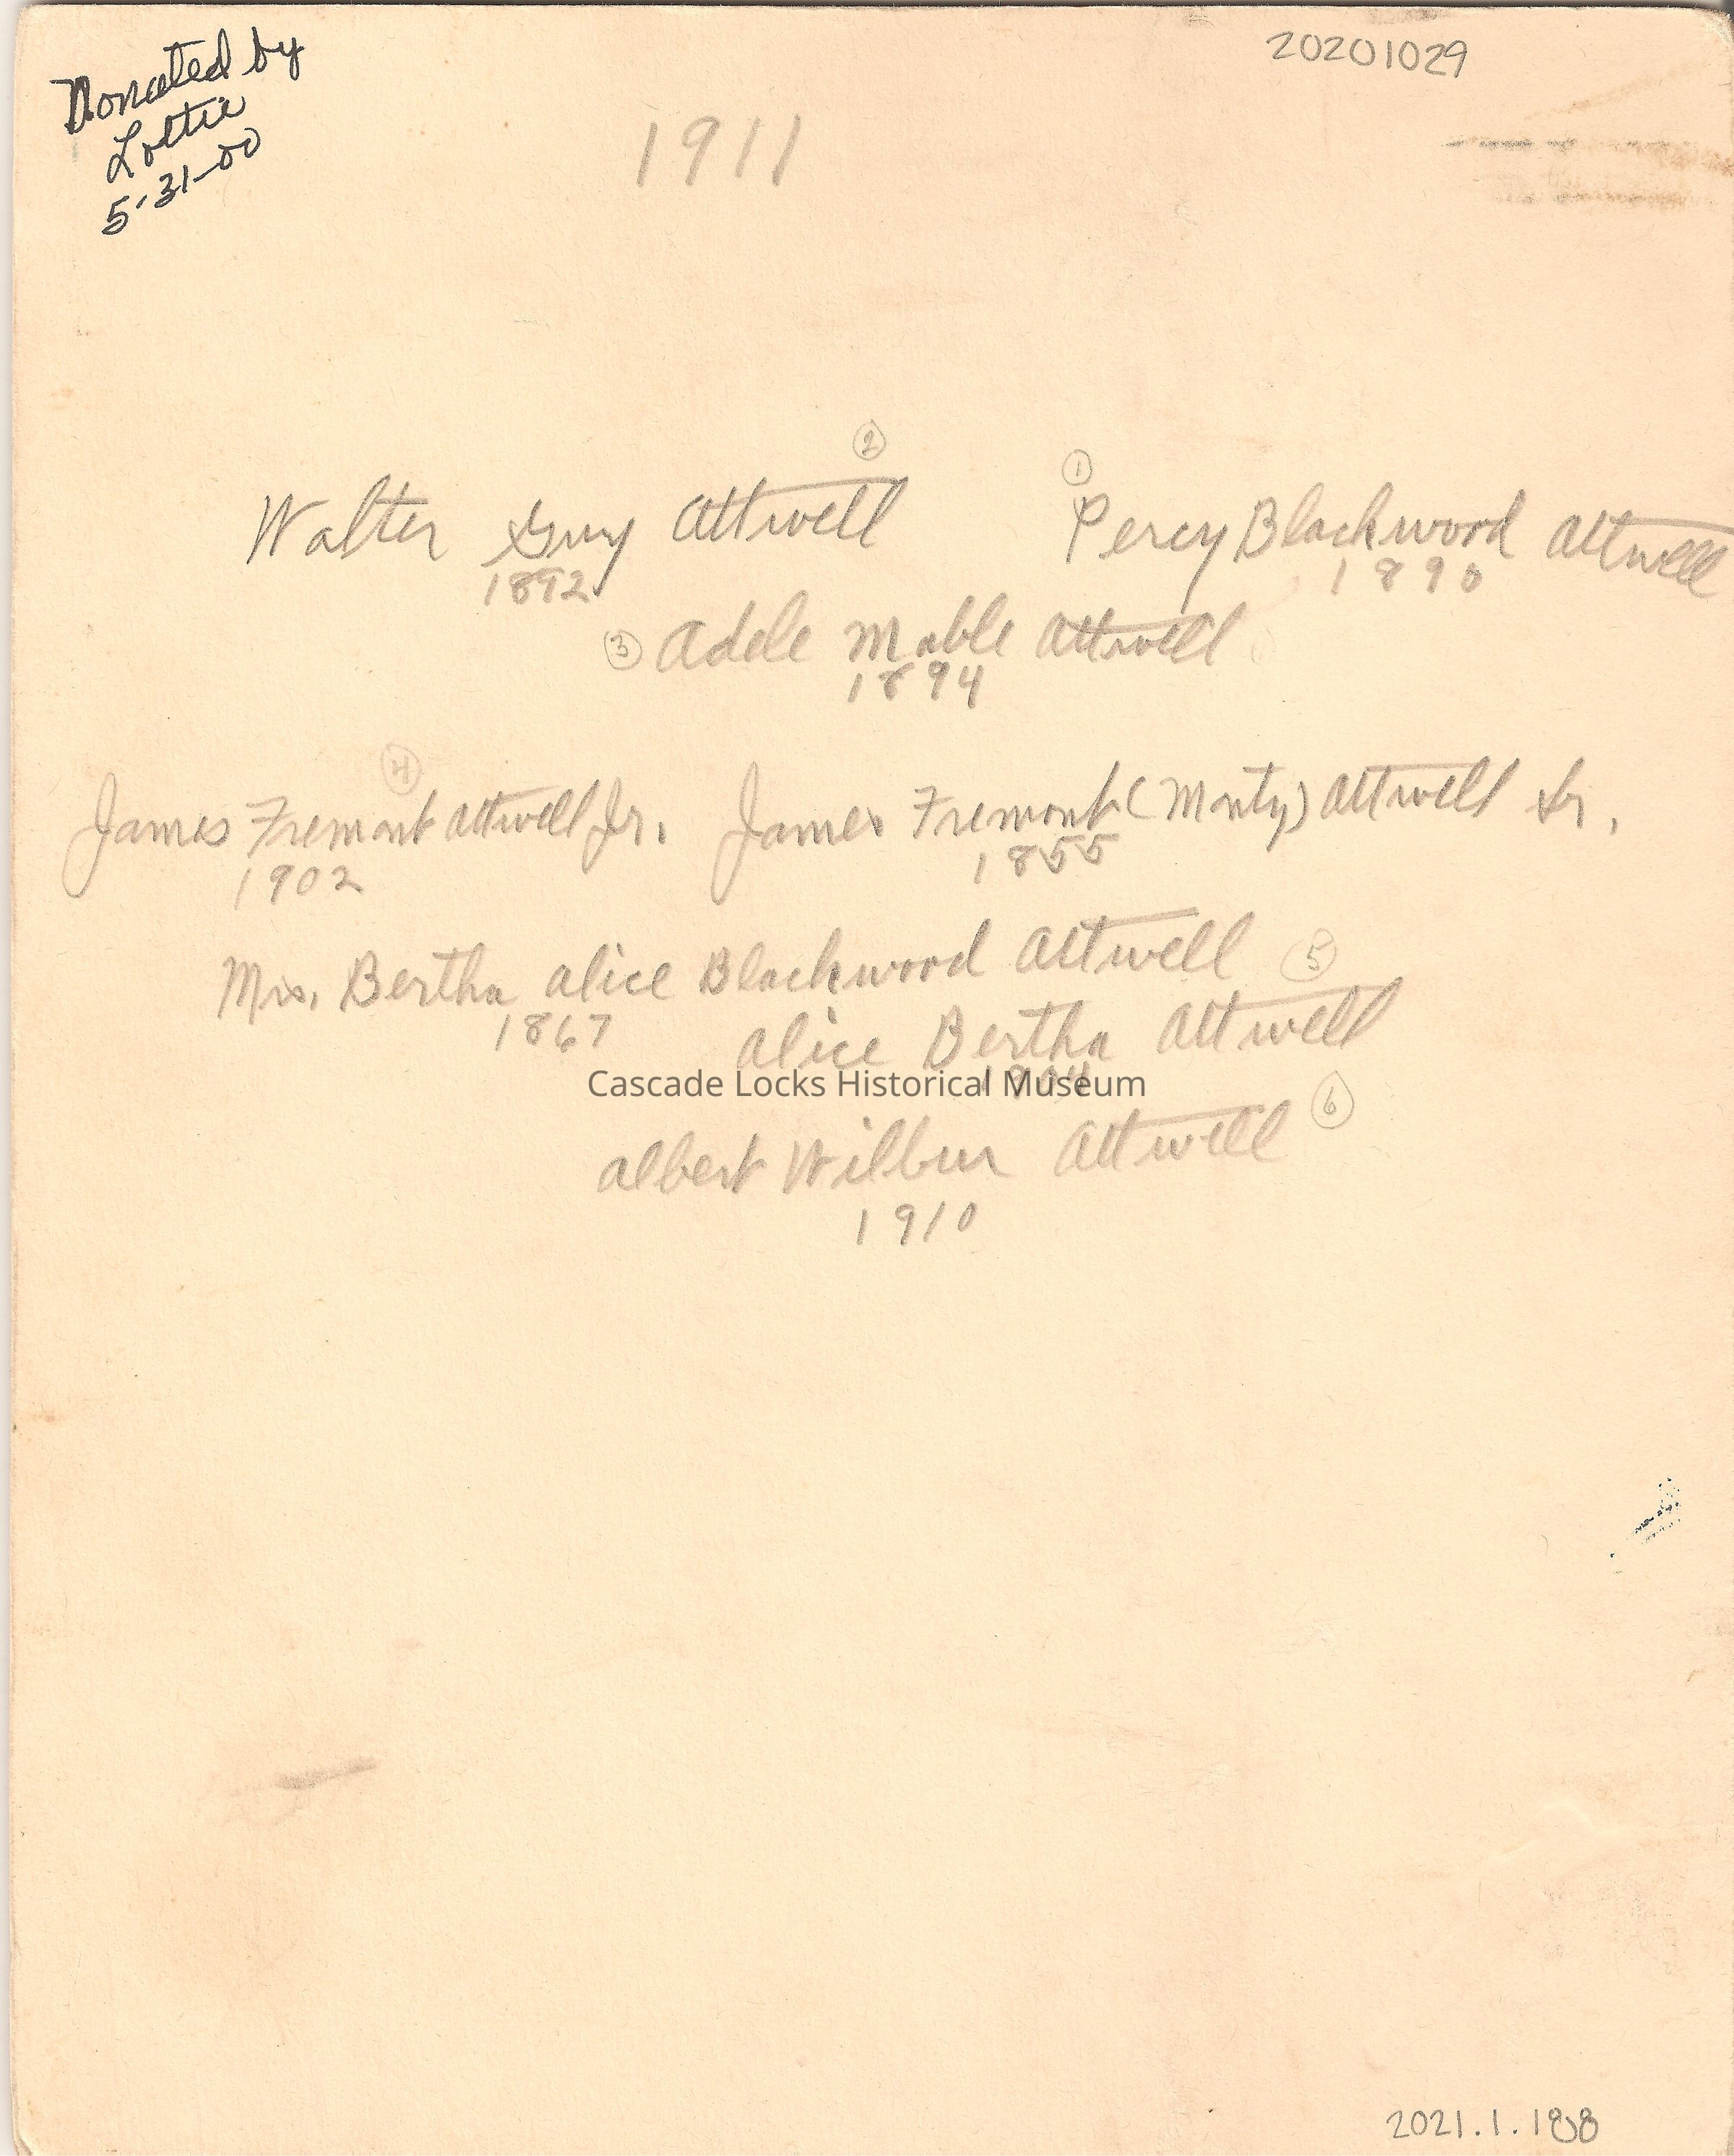 Donated by
Lottie
5-31-00
20201029
1911
② ①
Walter Guy Attwell Percy Blackwood Attwell
1892 1890
③ Adele Mable Attwell
1894
④
James Fremont Attwell Jr. James Fremont (Monty) Attwell Sr.
1902 1855
Mrs. Bertha Alice Blackwood Attwell
1867
⑤
Alice Bertha Attwell
Cascade Locks Historical Museum
⑥
Albert Wilbur Attwell
1910
2021.1.188